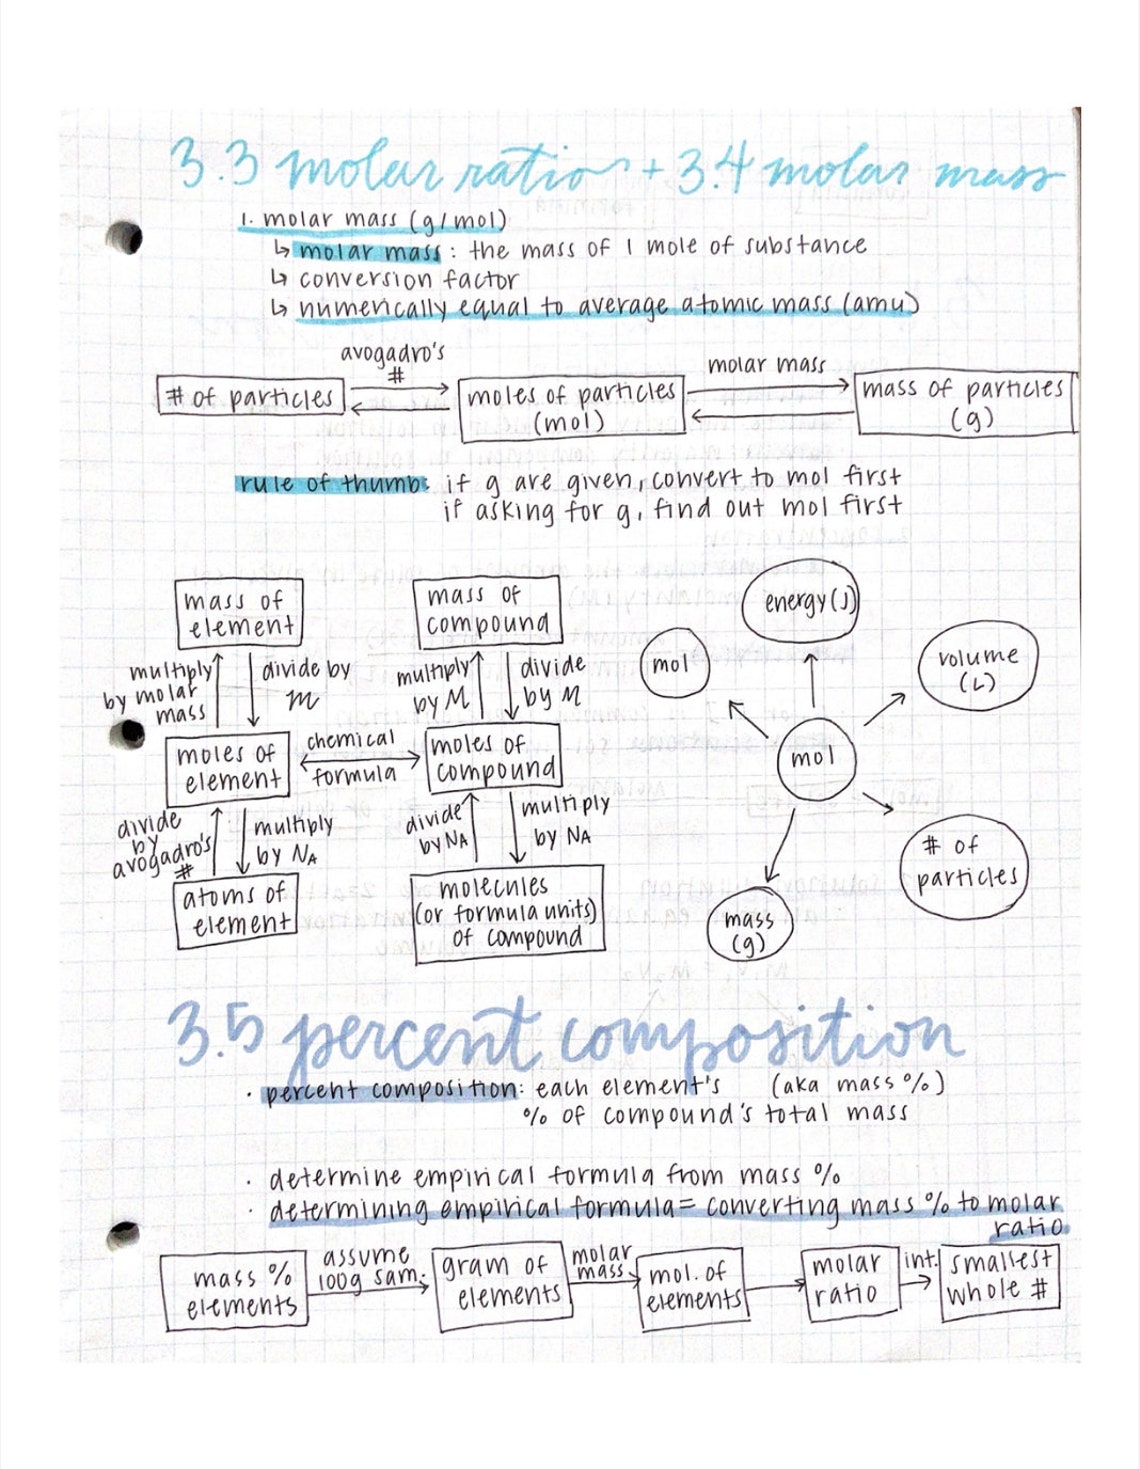 3.3 molar ratio + 3.4 molar mass
1. molar mass (g/mol)
↳ molar mass: the mass of 1 mole of substance
↳ conversion factor
↳ numerically equal to average atomic mass (amu)
avogadro's
#
molar mass
# of particles
moles of particles
(mol)
mass of particles
(g)
rule of thumb: if g are given, convert to mol first
if asking for g, find out mol first
mass of
element
multiply
by molar
mass
divide by
m
moles of
element
divide
by
avogadro's
#
multiply
by NA
atoms of
element
chemical
formula
mass of
compound
multiply
by M
divide
by M
moles of
compound
divide
by NA
multiply
by NA
molecules
(or formula units)
of compound
energy (J)
mol
volume
(L)
mol
# of
particles
mass
(g)
3.5 percent composition
· percent composition: each element's (aka mass %)
% of compound's total mass
· determine empirical formula from mass %
· determining empirical formula = converting mass % to molar
ratio
mass %
elements
assume
100g sam.
gram of
elements
molar
mass
mol. of
elements
molar
ratio
int.
smallest
whole #